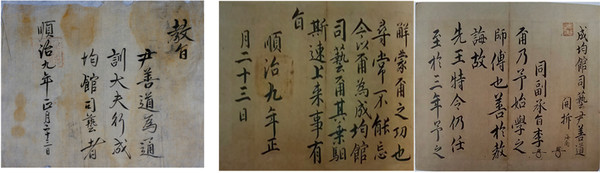 敎旨
尹善道爲通
訓大夫行成
均館司藝者
順治九年正月二十三日
成均館司藝尹善道
開拆
同副承旨李
爾乃予始學之
師傅也善於敎
誨故
先王特令仍任
至於三年予之
解蒙爾之功也
尋常不能忘
今以爾爲成均館
司藝爾其乘馹
斯速上來事有
旨
順治九年正
月二十三日